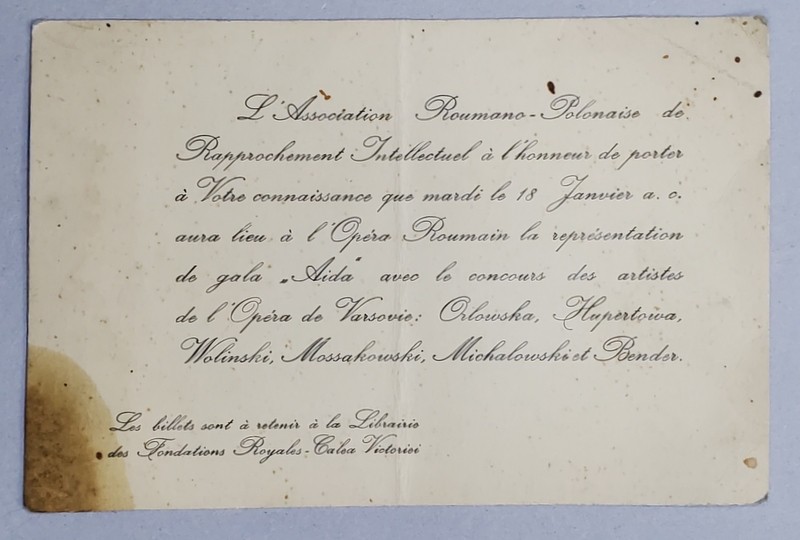 L'Association Roumano-Polonaise de
Rapprochement Intellectuel à l'honneur de porter
à Votre connaissance que mardi le 18 Janvier a. c.
aura lieu à l'Opéra Roumain la représentation
de gala „Aida" avec le concours des artistes
de l'Opéra de Varsovie: Orlowska, Hupertowa,
Wolinski, Mossakowski, Michalowski et Bender.
Les billets sont à retenir à la Librairie
des Fondations Royales-Calea Victoriei